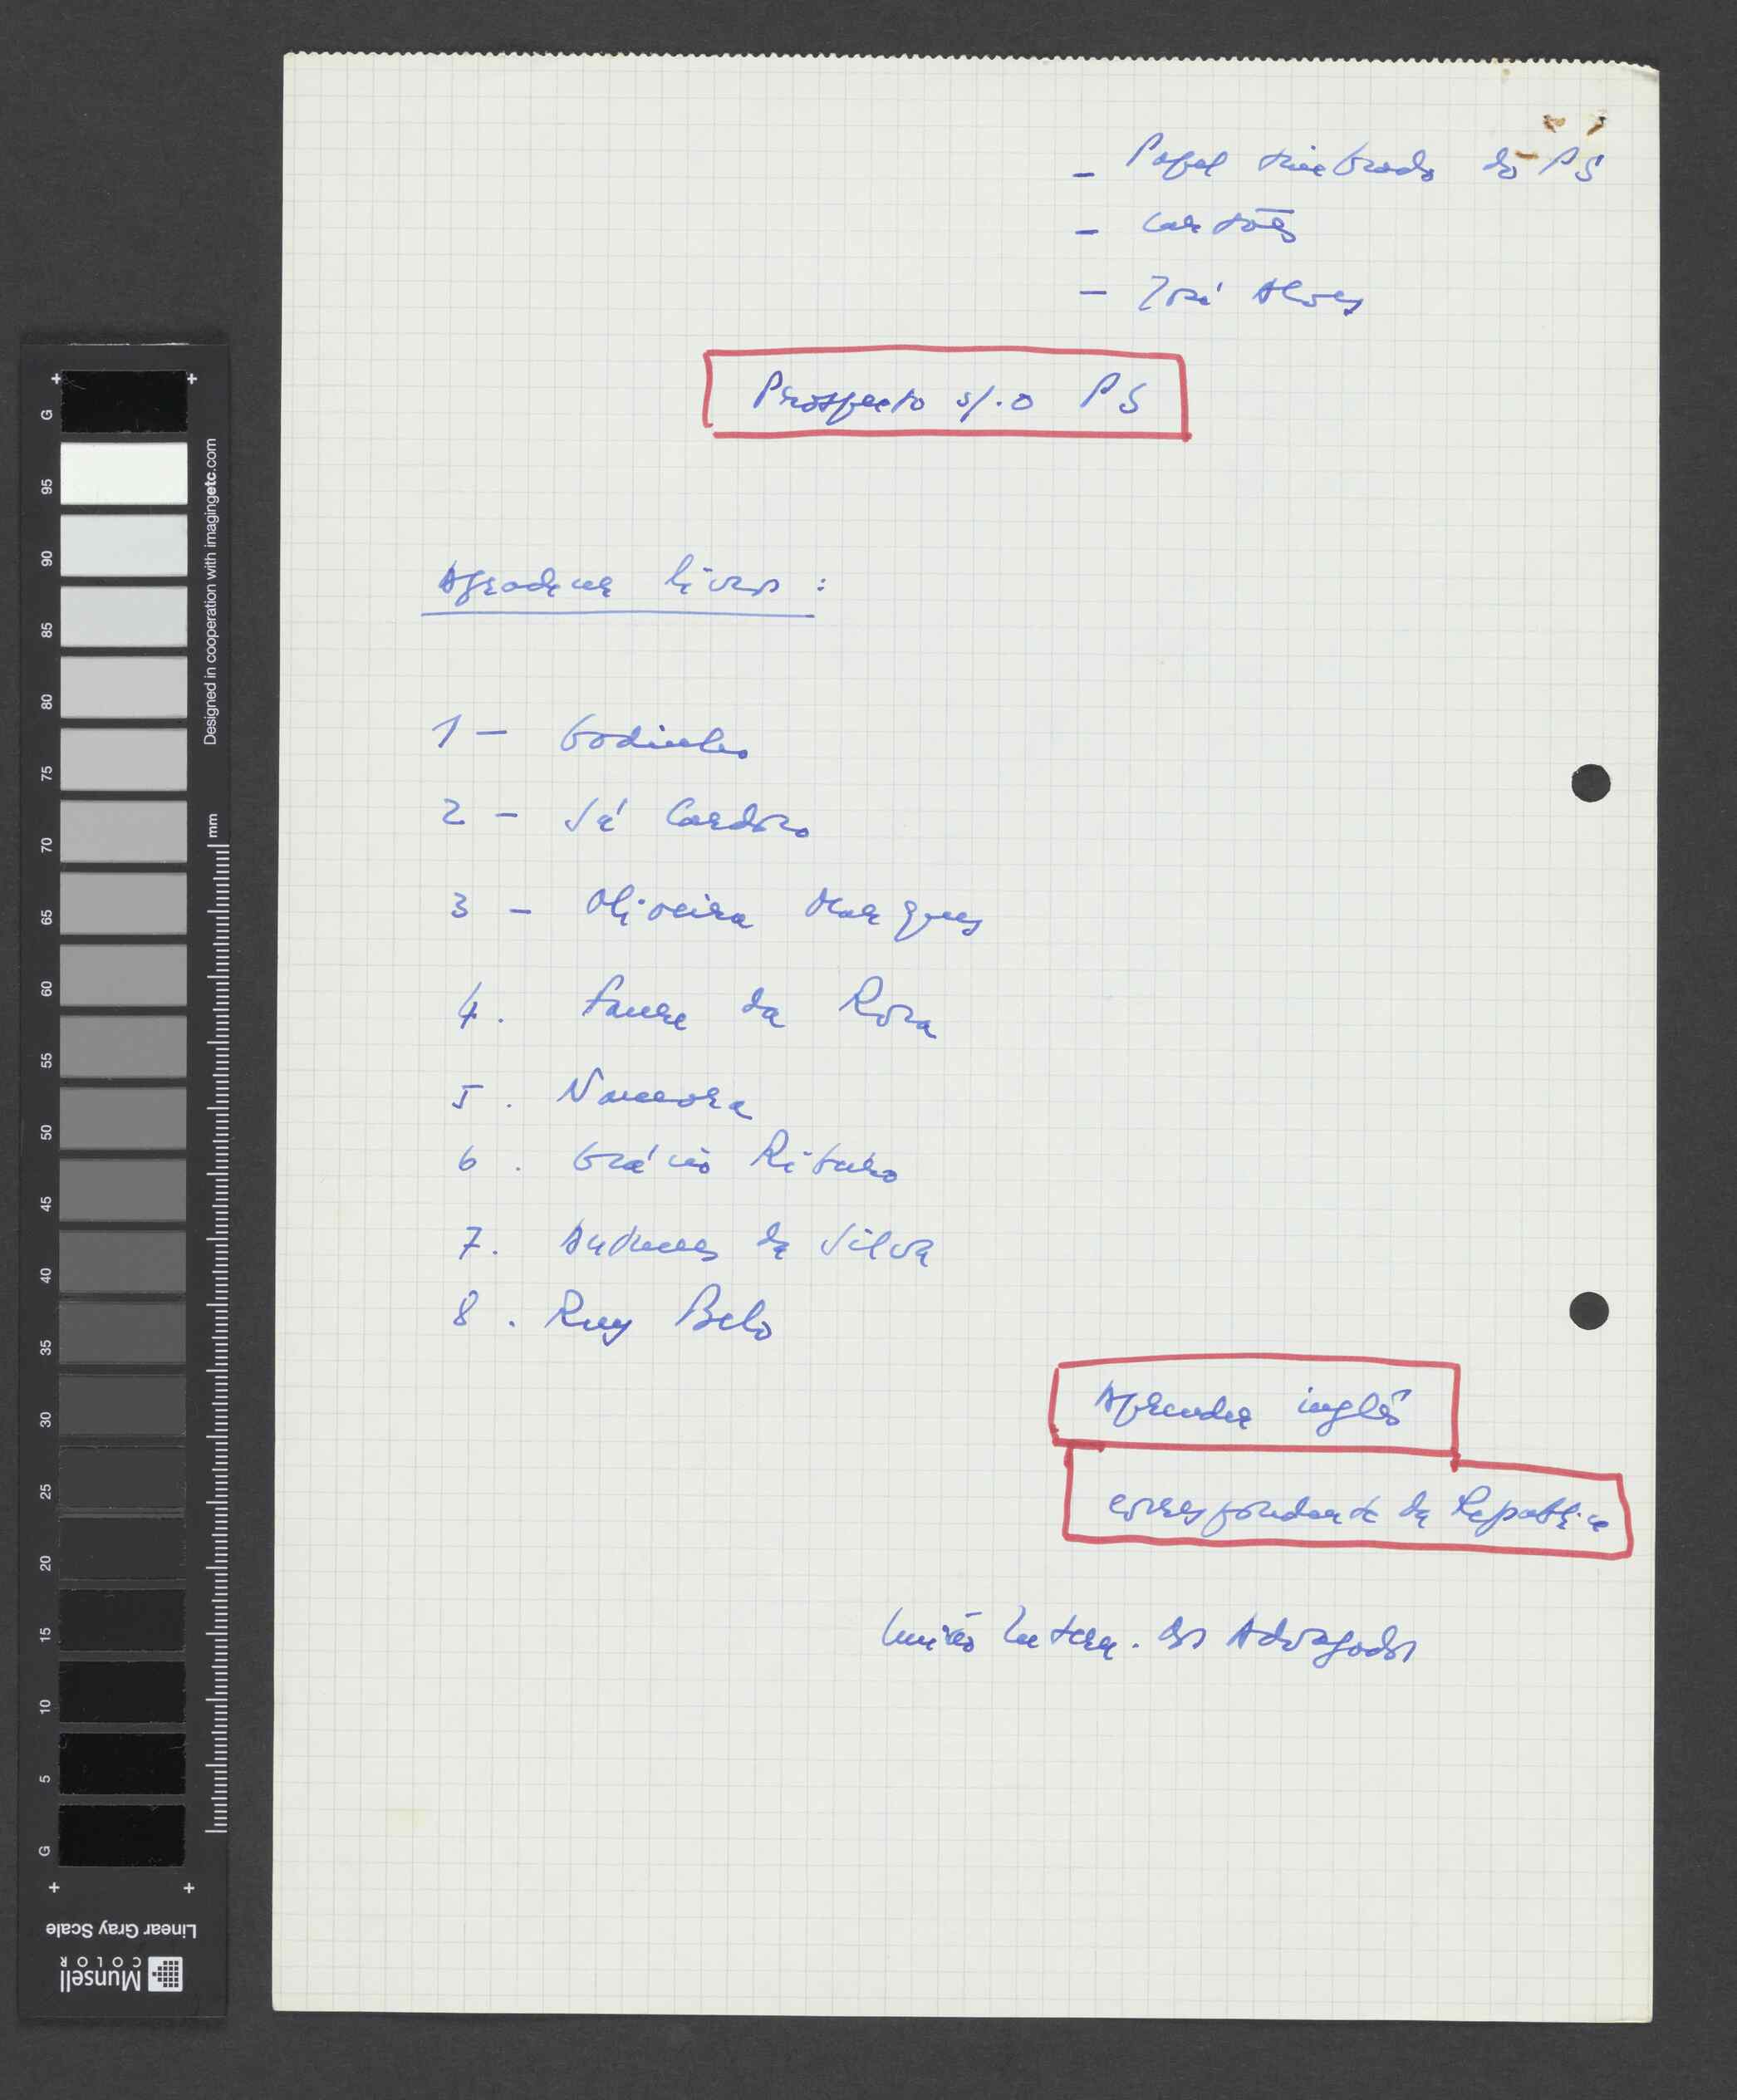 - Papel timbrado do PS
- Cartões
- José Alves
Prospecto s/. o PS
Agradecer livros :
1 - Godinho
2 - Sá Cardoso
3 - Oliveira Marques
4 . Faure da Rosa
5 . Namora
6 . Grácio Ribeiro
7 . Antunes da Silva
8 . Ruy Belo
Aprender inglês
correspondente da República
União Intern. dos Advogados
G
95
90
85
80
75
70
65
60
55
50
45
40
35
30
25
20
15
10
5
G
Designed in cooperation with imagingetc.com
mm
Linear Gray Scale
Munsell
COLOR